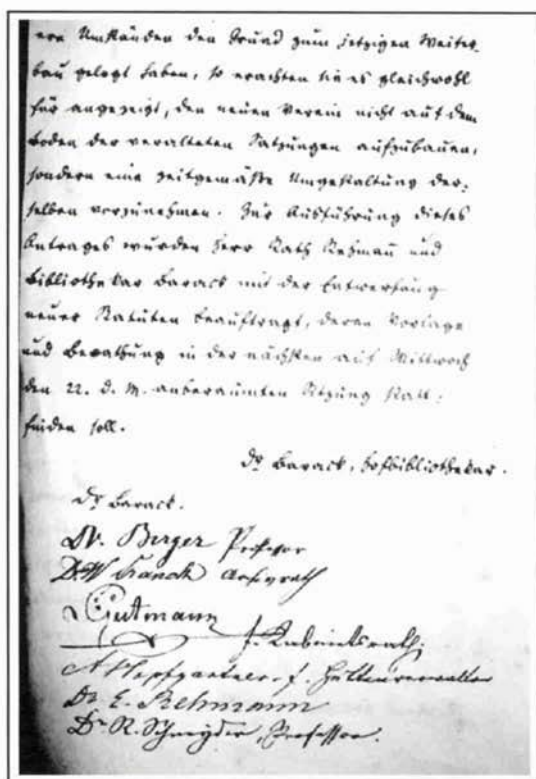 ren Umständen den Grund zum jetzigen Weiter-
bau gelegt haben, so erachten sie es gleichwohl
für angezeigt, den neuen Verein nicht auf dem
Boden der veralteten Satzungen aufzubauen,
sondern eine zeitgemäße Umgestaltung der-
selben vorzunehmen. Zur Ausführung dieses
Antrages wurden Herr Rath Rehmañ und
Bibliothekar Barack mit der Entwerfung
neuer Statuten beauftragt, deren Vorlage
und Berathung in der nächsten auf Mittwoch
den 22. d. M. anberaumten Sitzung statt-
finden soll.
Dr Barack, Hofbibliothekar.
Dr Barack.
Dr. Berger Professor
Dr. W Franck Archivrath
Gutmann
f. Kabinetsrath
A Hopfgartner f. Hüttenverwalter
Dr. E. Rehmann
Dr R. Schnyder, Professor.